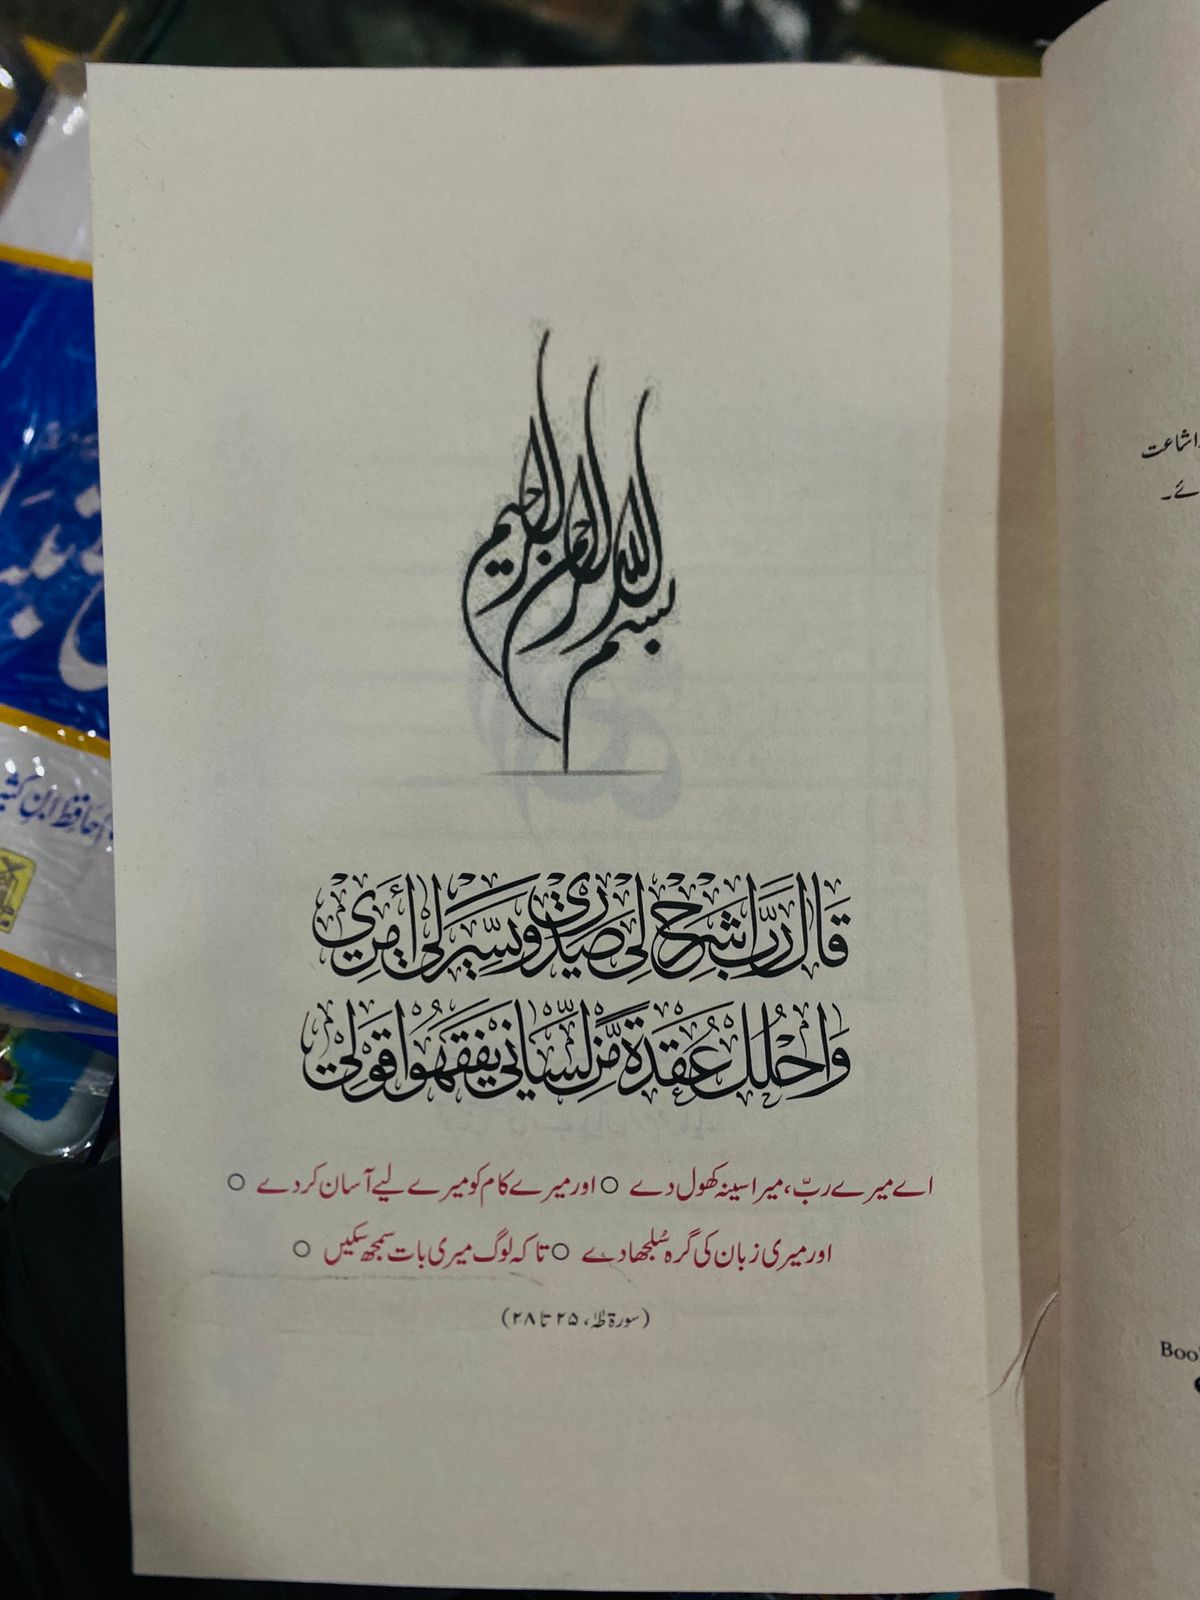 بسم الله الرحمن الرحيم
قَالَ رَبِّ اشْرَحْ لِي صَدْرِي وَيَسِّرْ لِي أَمْرِي
وَاحْلُلْ عُقْدَةً مِّن لِّسَانِي يَفْقَهُوا قَوْلِي
اے میرے ربّ، میرا سینہ کھول دے ○ اور میرے کام کو میرے لیے آسان کر دے ○
اور میری زبان کی گرہ سُلجھا دے ○ تاکہ لوگ میری بات سمجھ سکیں ○
(سورۃ طٰہٰ، ۲۵ تا ۲۸)
اشاعت
ئے۔
Boo
حافظ ابن کثیر